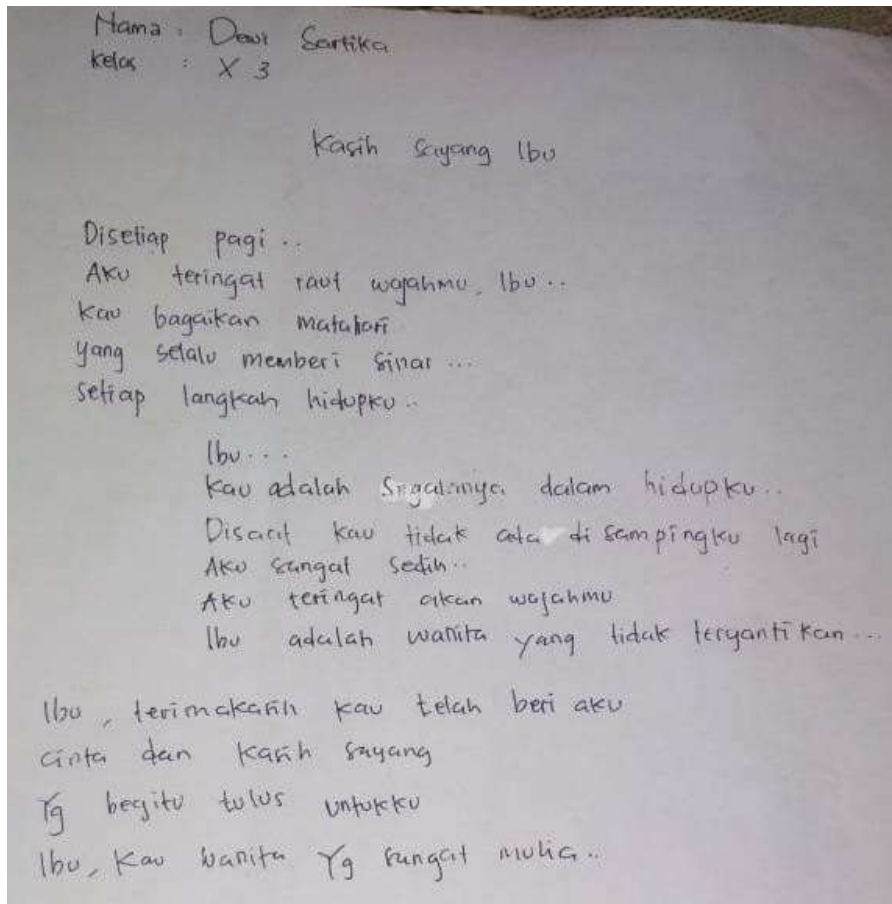 Nama : Dewi Sartika
Kelas : X 3
Kasih Sayang Ibu
Disetiap pagi ..
Aku teringat raut wajahmu, Ibu ..
Kau bagaikan matahari
yang selalu memberi sinar ...
setiap langkah hidupku ..
Ibu ...
Kau adalah Segalanya dalam hidupku ..
Disaat kau tidak ada di sampingku lagi
Aku sangat sedih ..
Aku teringat akan wajahmu
Ibu adalah wanita yang tidak tergantikan ...
Ibu, terimakasih kau telah beri aku
cinta dan kasih sayang
Yg begitu tulus untukku
Ibu, Kau wanita Yg sangat mulia ..